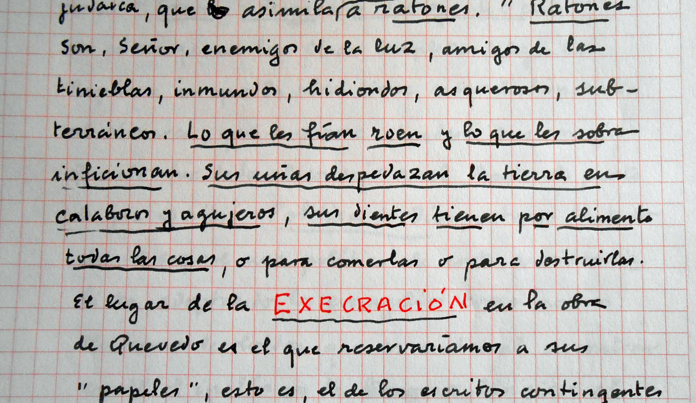 judaica, que asimila a ratones. "Ratones
son, Señor, enemigos de la luz, amigos de las
tinieblas, inmundos, hidiondos, asquerosos, sub-
terráneos. Lo que les fían roen y lo que les sobra
inficionan. Sus uñas despedazan la tierra en
calabozos y agujeros, sus dientes tienen por alimento
todas las cosas, o para comerlas o para destruirlas.
El lugar de la EXECRACIÓN en la obra
de Quevedo es el que reservaríamos a sus
"papeles", esto es, el de los escritos contingentes